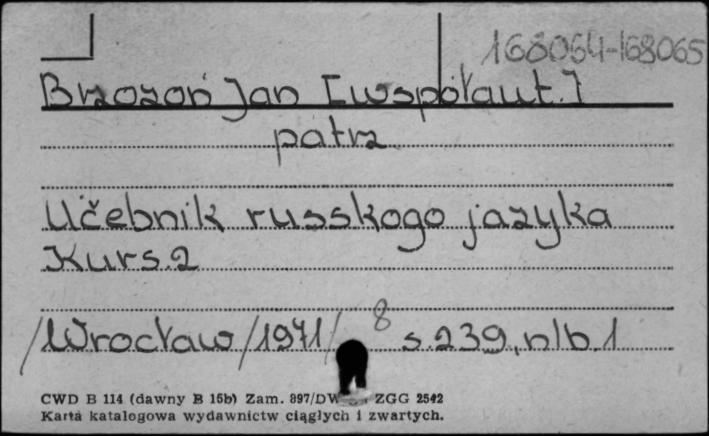 168064-168065
Brzozoń Jan [współaut.]
patrz
Učebnik russkogo jazyka
Kurs.2
/Wrocław/1971/ 8 s.239, nlb.1
CWD B 114 (dawny B 15b) Zam. 897/DW ZGG 2542
Karta katalogowa wydawnictw ciągłych i zwartych.